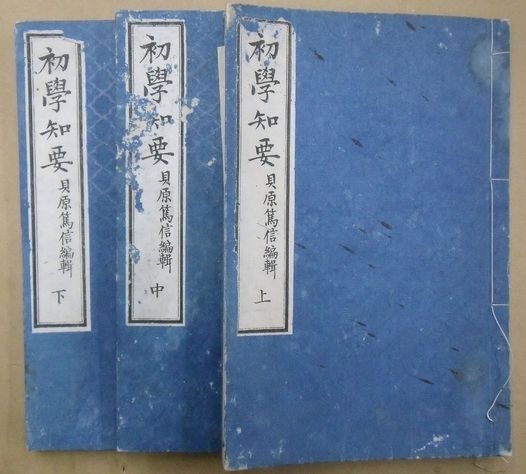 初學知要 貝原篤信編輯 上
初學知要 貝原篤信編輯 中
初學知要 貝原篤信編輯 下